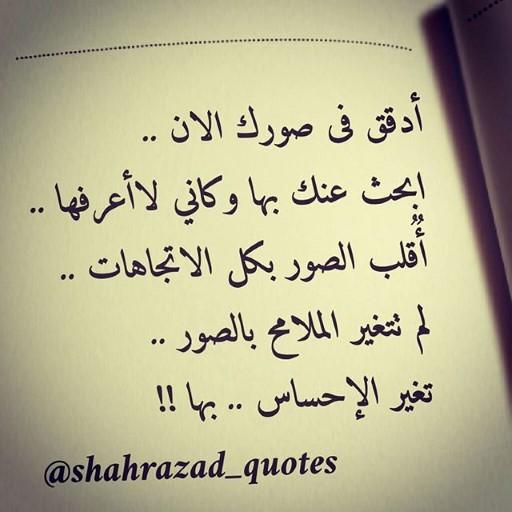 أدقق فى صورك الان ..
ابحث عنك بها وكاني لاأعرفها ..
أُقلب الصور بكل الاتجاهات ..
لم تتغير الملامح بالصور ..
تغير الإحساس .. بها !!
@shahrazad_quotes